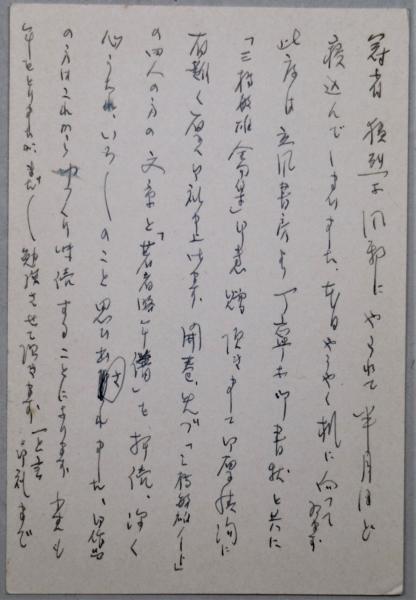 冠省 猛烈な風邪にやられて半月ほど
寝込んでしまいました、本日やうやく机に向って
此度は立風書房より丁寧な御書状と共に
「三橋敏雄全集」御恵贈頂きまして御厚情洵に
有難く厚く御礼申上げます 開巻、先づ「三橋敏雄ノート」
の四人の方の文章と「著者略年譜」を拝読、深く
心うたれ、いろ〱のこと思ひ出されました、御作品
の方はこれからゆっくり味読することになります
年をとりましたが、まだ〱勉強させて頂きます 一と言 御礼まで